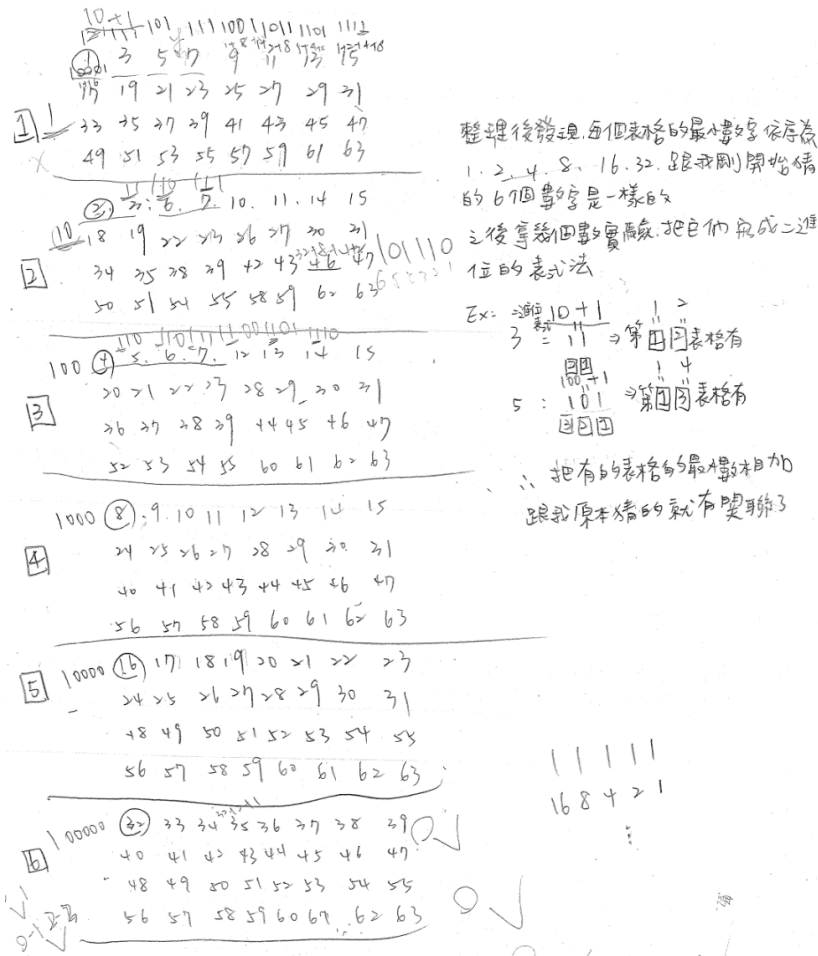 10+1
101 111 1001 1011 1101 1111
1 3 5 7 9 11 13 15
10001
17 19 21 23 25 27 29 31
1 1
33 35 37 39 41 43 45 47
49 51 53 55 57 59 61 63
11 110 111
2 3 6 7 10 11 14 15
10
18 19 22 23 26 27 30 31
101110
2
34 35 38 39 42 43 46 47
50 51 54 55 58 59 62 63
100 4 5 6 7 12 13 14 15
20 21 22 23 28 29 30 31
3
36 37 38 39 44 45 46 47
52 53 54 55 60 61 62 63
1000 8 9 10 11 12 13 14 15
24 25 26 27 28 29 30 31
4
40 41 42 43 44 45 46 47
56 57 58 59 60 61 62 63
10000 16 17 18 19 20 21 22 23
5
24 25 26 27 28 29 30 31
48 49 50 51 52 53 54 55
56 57 58 59 60 61 62 63
100000 32 33 34 35 36 37 38 39
6
40 41 42 43 44 45 46 47
48 49 50 51 52 53 54 55
56 57 58 59 60 61 62 63
整理後發現,每個表格的最小數字依序為
1、2、4、8、16、32,跟我剛開始猜
的6個數字是一樣的
之後拿幾個數實驗,把它們寫成二進
位的表式法
Ex: 二進位表式 10+1
1 2
3 = 11 ⇒ 第1 2表格有
2 1
100+1
1 4
5 : 101 ⇒ 第1 3表格有
3 2 1
∴ 把有的表格的最小數相加
跟我原本猜的就有關聯了
1 1 1 1 1
16 8 4 2 1
⋮